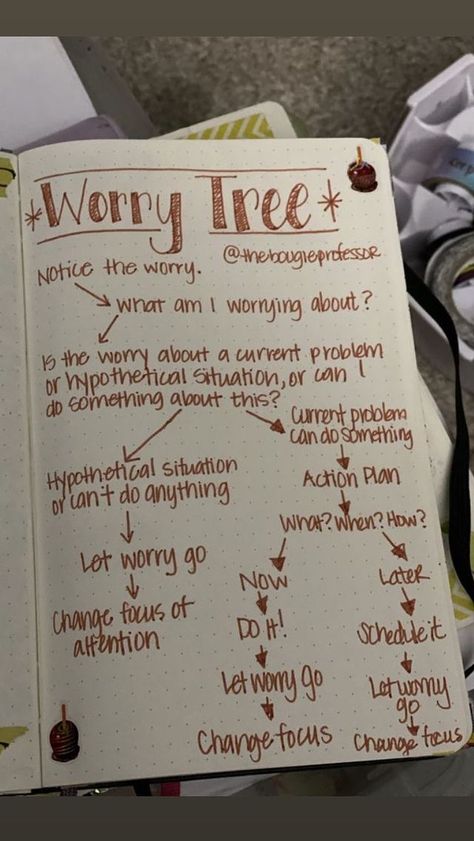 *Worry Tree*
@thebougieprofessor
Notice the worry.
What am I worrying about?
Is the worry about a current problem
or hypothetical situation, or can I
do something about this?
Hypothetical situation
or can't do anything
Let worry go
Change focus of
attention
Current problem
can do something
Action Plan
What? When? How?
Now
Do It!
Let worry go
Change focus
Later
Schedule it
Let worry
go
Change focus